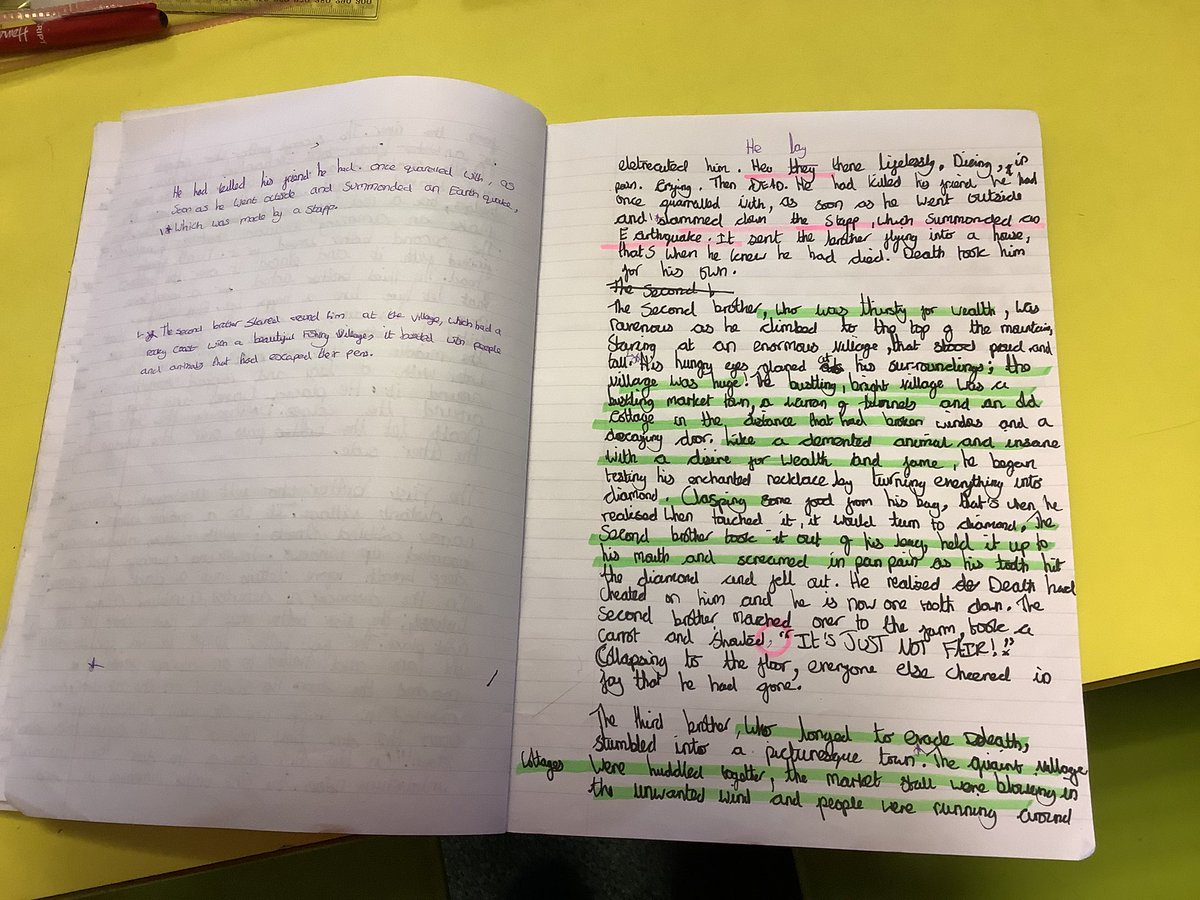 He had killed his friend he had. once quarrelled with, as
soon as he went outside and Summonded an Earth quake,
which was made by a stapp.
The second brother stared round him at the village, which had a
rocky coast with a beautiful Fishing Villages, it busteld with people
and animals that had escaped their pens.
He lay
eletrecuted him. Hey they there lifelessly. Dieing, in
pain. Crying. Then DEAD. He had killed his friend he had
once quarrelled with, as soon as he went outside
and slammed down the Stapp, which Summonded an
Earthquake. It sent the brother flying into a house,
that's when he knew he had died. Death took him
for his own.
The Second b
The Second brother, who was thirsty for wealth, was
ravenous as he climbed to the top of the mountain,
Staring at an enormous village, that stood proud and
tall. His hungry eyes glared at his surroundings; the
village was huge! The bustling, bright village was a
bustling market town, a waran of tunnels and an old
cottage in the distance that had broken windos and a
decaying door. Like a demented animal and insane
with a disire for wealth and fame, he began
testing his enchanted necklace by turning everything into
diamond. Clasping some food from his bag, that's when he
realised when touched it, it would turn to diamond. The
Second brother took it out of his bag, held it up to
his mouth and screamed in pan pain as his tooth hit
the diamond and fell out. He realised Death had
cheated on him and he is now one tooth down. The
second brother marched over to the farm, took a
carrot and shouted, "IT'S JUST NOT FAIR!!"
Collapsing to the floor, everyone else cheered in
joy that he had gone.
The third brother, who longed to evade Death,
stumbled into a picturesque town. The quaint village
cottages were huddled together, the market stall were blowing in
the unwanted wind and people were running around